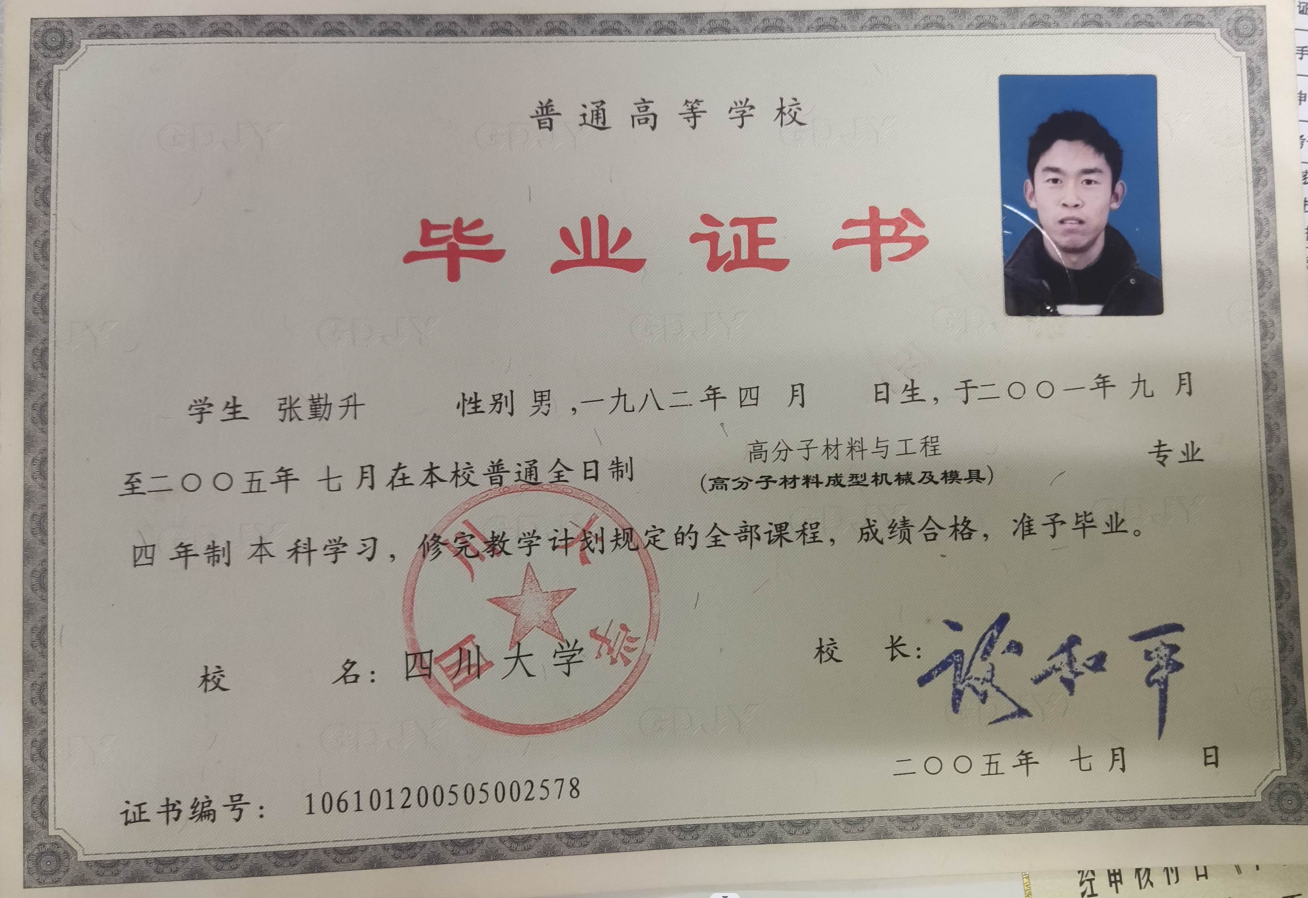 普通高等学校
毕业证书
学生 张勤升 性别 男 ,一九八二年 四 月 日生, 于二〇〇一年 九 月
至二〇〇五年 七 月在本校普通全日制 高分子材料与工程 专业
(高分子材料成型机械及模具)
四 年制 本 科学习, 修完教学计划规定的全部课程, 成绩合格, 准予毕业。
四川大学
校 名: 四川大学 校 长: 谢和平
二〇〇五年 七 月 日
证书编号: 106101200505002578